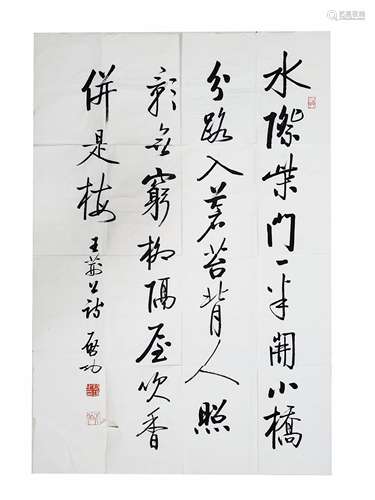 水際柴門一半開小橋
分路入蒼苔背人照
影無窮柳隔屋吹香
併是梅
王荊公詩 啟功